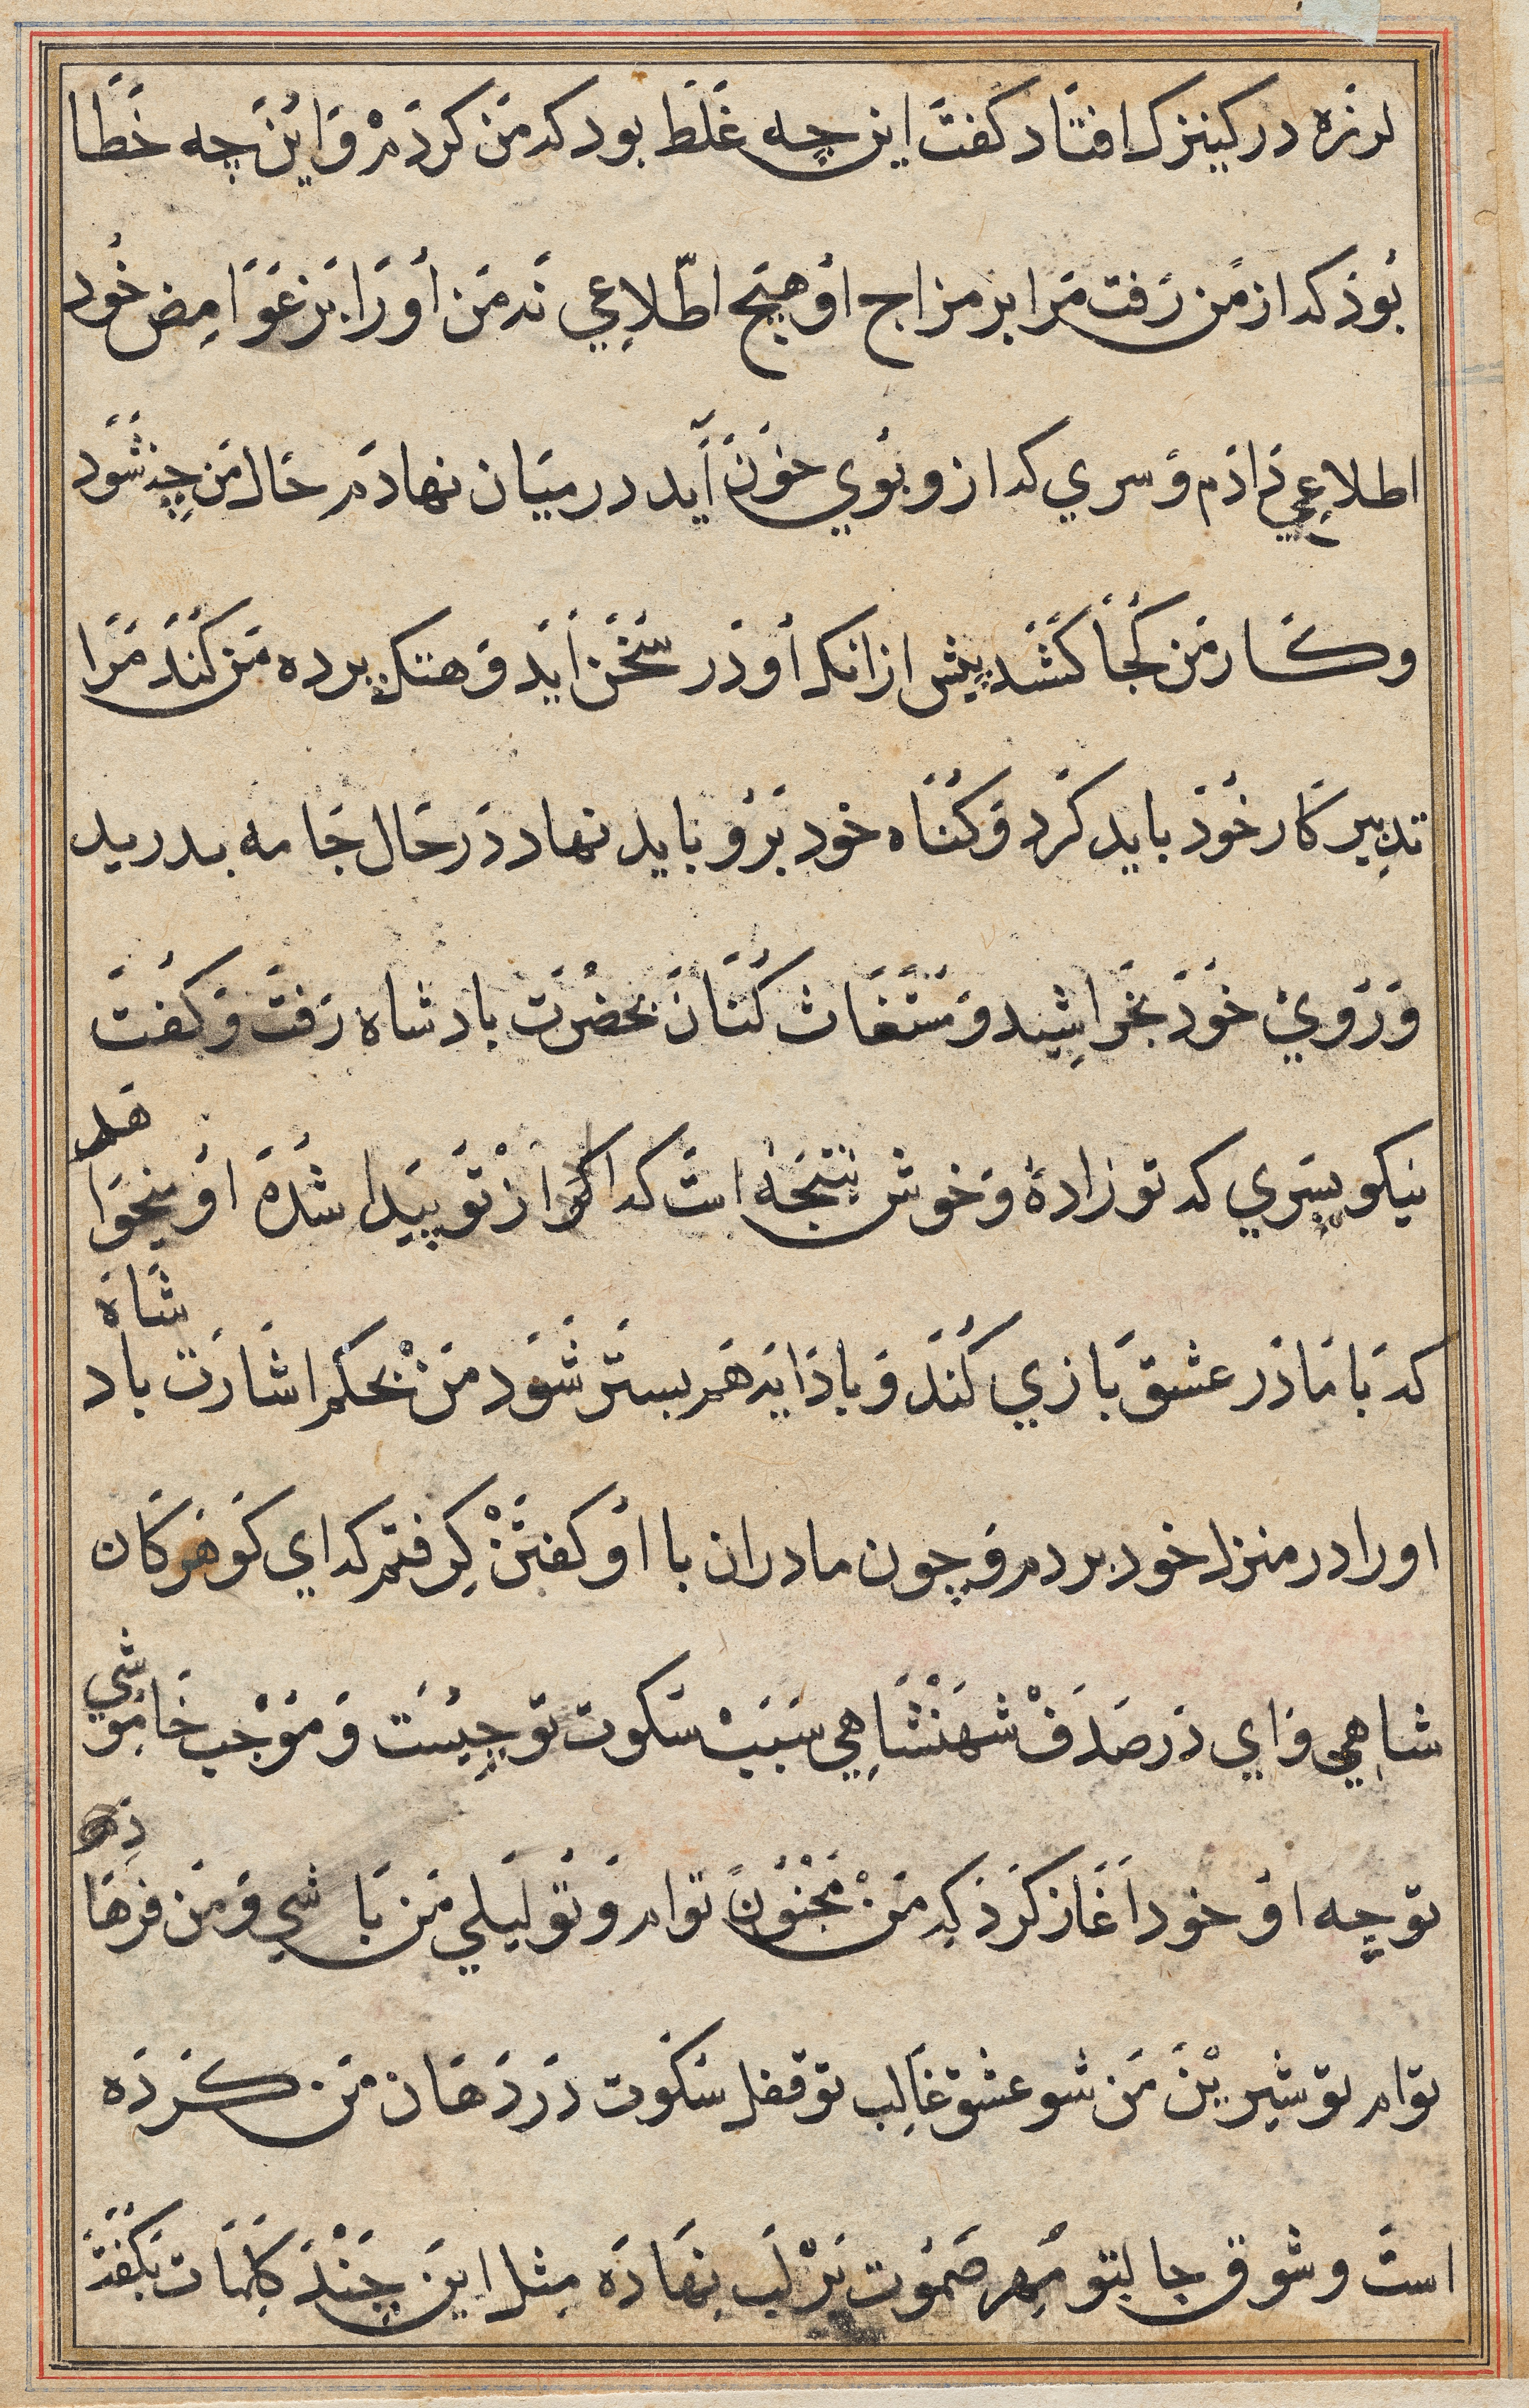 لرزه در کینزک افتاد کفت این چه غلط بود که من کردم و این چه خطا
بوذ که از من رفت مرا بر مزاج او هیچ اطلاعي نه من او را بر غوامض خود
اطلاعي دادم و سري که ازو بوي خون آید در میان نهادم حال من چه شود
و کار من کجا کشد پیش ازانکه او در سخن اید و هتک پرده من کند مرا
تدبیر کار خوذ باید کرد و کناه خود برو باید نهاد در حال جامه بدرید
و روي خود بخراشید و مستغاث کنان بحضرت بادشاه رفت و کفت
نیکو پسري که تو زادهٔ و خوش نتیجهٔ است که اکنو از تو پیدا شده او میخواهد
که با مادر عشق بازي کند و با دایه هم بستر شود من بحکم اشارت بادشاه
او را در منزل خود بردم و چون مادران با او کفتن کرفتم که اي کوهر کان
شاهي و اي در صدف شهنشاهي سبب سکوت تو چیست و موجب خاموشي
تو چه او خود آغاز کرد که من مجنون توام و تو لیلي من باشي و من فرهاد
توام تو شیرین من شو عشق غالب تو قفل سکوت در دهان من کرده
است و شوق جالب تو مهر صموت بر لب نهاده مثل این چند کلمات بکفت